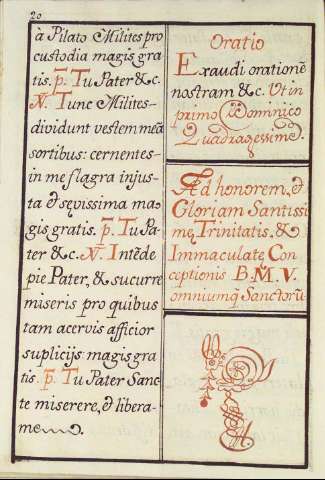 20
à Pilato Milites pro
custodia magis gra
tis. p. Tu Pater &c.
N. Tunc Milites
dividunt vestem meã
sortibus: cernentes-
in me flagra injus-
ta & sęvissima ma-
gis gratis. p. Tu Pa-
ter &c. N. Intẽde
pie Pater, & sucurre
miseris pro quibus
tam acervis afficior
suplicijs magis gra
tis. p. Tu Pater Sanc
te miserere, & libera-
me
Oratio
Exaudi orationẽ
nostram &c. Ut in
primo Dominico
Quadragessimę.
Ad honorem, &
Gloriam Santissi
mę Trinitatis, &
Immaculatę Con
ceptionis B. M. V.
omniumq Sanctorũ